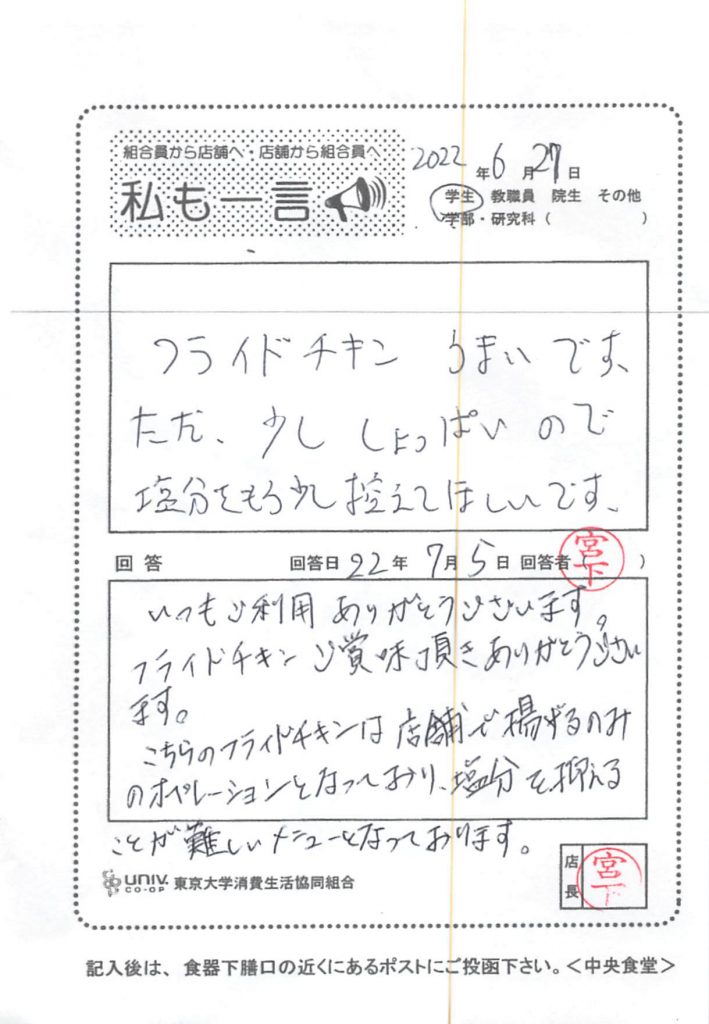 組合員から店舗へ・店舗から組合員へ
私も一言
2022年6月27日
学生 教職員 院生 その他
学部・研究科( )
フライドチキン うまいです、
ただ、少し しょっぱい ので
塩分をもう少し控えてほしいです、
回答 回答日 22年 7月5日 回答者( 宮下 )
いつもご利用ありがとうございます。
フライドチキンご賞味頂きありがとうござい
ます。
こちらのフライドチキンは店舗で揚げるのみ
のオペレーションとなっており、塩分を抑える
ことが難しいメニューとなっております。
UNIV. CO-OP 東京大学消費生活協同組合
店長 宮下
記入後は、食器下膳口の近くにあるポストにご投函下さい。<中央食堂>